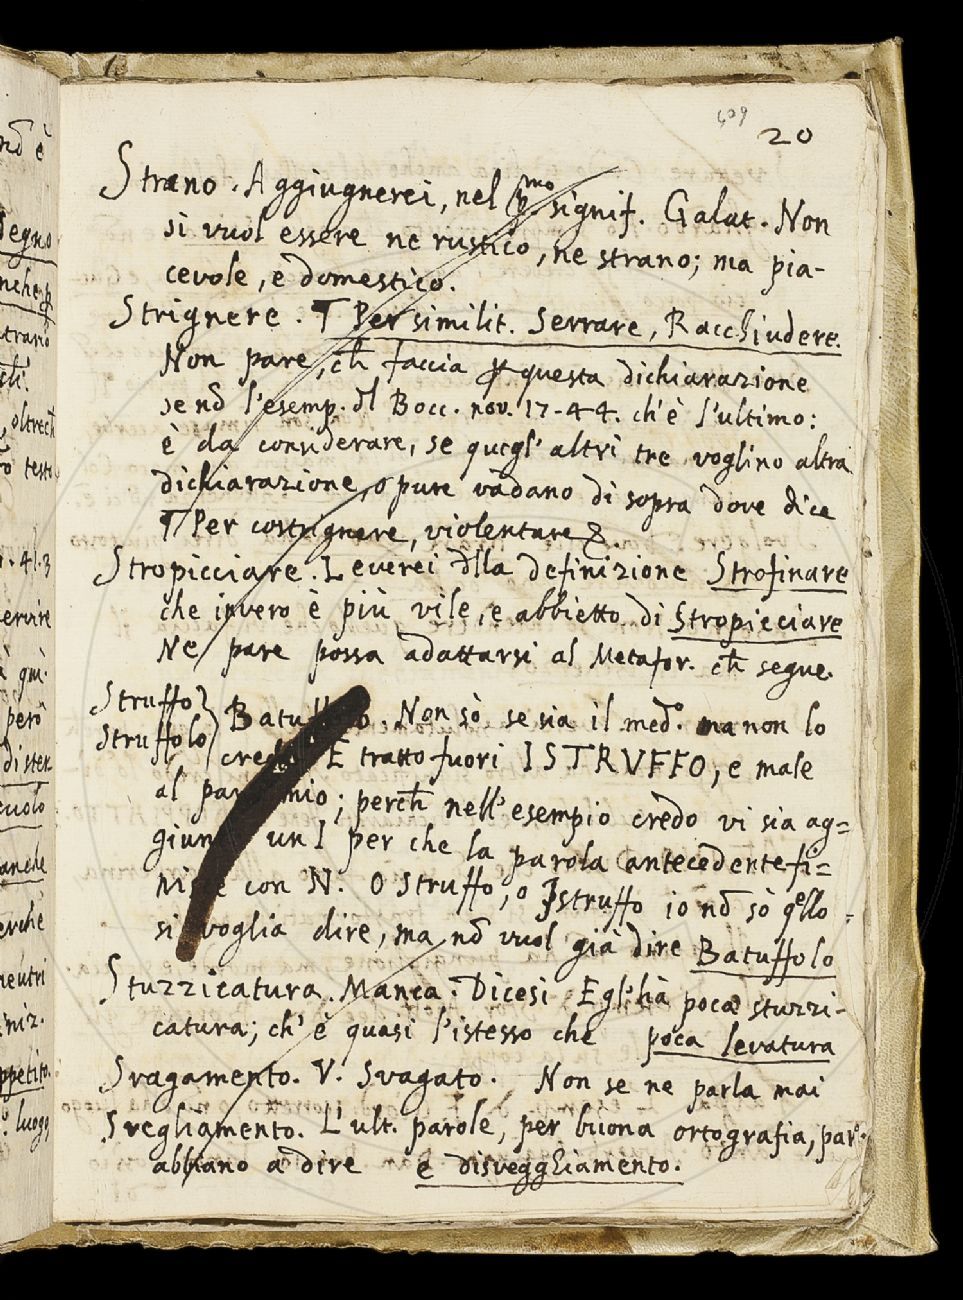 409
20
Strano. Aggiugnerei, nel pmo signif. Galat. Non
si vuol essere ne rustico, ne strano; ma pia-
cevole, e domestico.
Strignere. ¶ Per similit. Serrare, Racchiudere.
Non pare, ch̄ faccia ꝑ questa dichiarazione
se nō l'esemp. dl Bocc. nov. 17-44. ch'è l'ultimo:
è da considerare, se quegl' altri tre voglino altra
dichiarazione, o pure vadano di sopra dove dice
¶ Per costrignere, violentare &.
Stropicciare. Leverei dlla definizione Strofinare
che invero è più vile, e abbietto di Stropicciare
Ne pare possa adattarsi al Metafor. ch̄ segue.
Struffo}
Struffolo} Batuffolo. Non sò se sia il medo. ma non lo
credo. E tratto fuori ISTRVFFO, e male
al mio; perch̄ nell'esempio credo vi sia ag=
giun un I per che la parola antecedente fi=
nisce con N. O Struffo, o Istruffo io nō sò qello
si voglia dire, ma nō vuol già dire Batuffolo
Sturzicatura. Manca. Dicesi Egl'hà poca sturzi-
catura; ch'è quasi l'istesso che poca levatura
Svagamento. V. Svagato. Non se ne parla mai
Svegliamento. L'ult. parole, per buona ortografia, par.
abbiano a dire e disvegghiamento.
nō è
degno
nche p
strano
, oltrech̄
testo
. 41.3
servire
à quì.
però
cuolo
anche
erche
neutri
niz.
appetito.
luogo